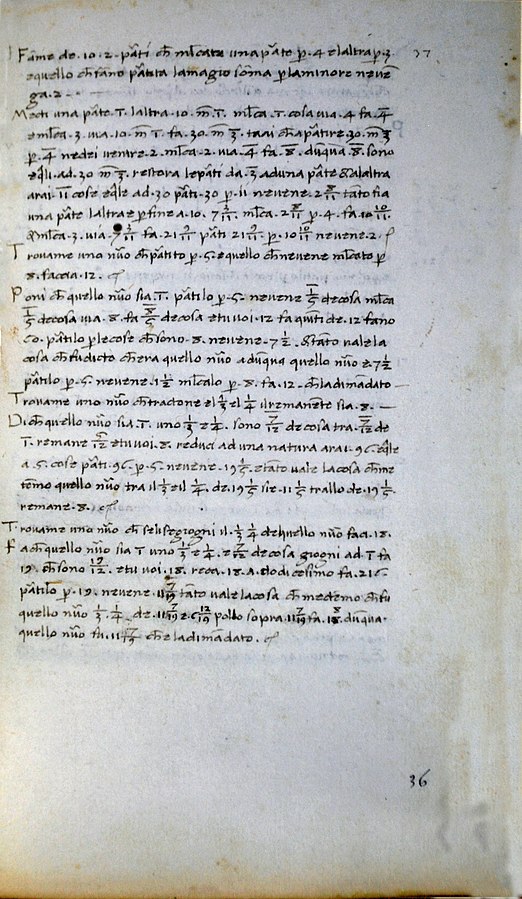 Fame de .10. 2. parti che mcata una parte per .4. e laltra per .3.   37
equello che fano partita la magio soma per la minore neven
ga .2.
Mecti una parte .1. laltra .10. m 1. mlca .1. cosa via .4. fa .4
e mlca .3. via .10. m 1. fa .30. m 3. tu ai che a partire .30. m 3
per .4 ne dei venire .2. mlca .2. via .4 fa .8. duqua .8. sono
eqli ad .30 m 3. restora le parti da .3 ad una parte & a laltra
arai .11 cose eqle ad .30 parti .30 per .11 nevene .2 8/11 tato fia
una parte laltra e per fine a .10. 7 3/11. mlca .2 8/11 per .4. fa .10 10/11
& mlca .3. via .7 3/11 fa .21 9/11 parti 21 9/11 per .10 10/11 nevene .2.
Trovame uno nuo che partito per .5. e quello che nevene mlcato per
8. faccia .12.
Poni che quello nuo sia .1. partilo per .5. nevene 1/5 de cosa mlca
1/5 de cosa via .8. fa 8/5 de cosa e tu voi .12 fa quiti de .12 fano
60. partilo per le cose che sono .8. nevene .7 1/2 & tato vale la
cosa che fu dicto che era quello nuo aduqua quello nuo e .7 1/2
partilo per .5. nevene .1 1/2 mlcalo per .8. fa .12 che la dimadato
Trovame uno nuo che tractone el 1/3 el 1/4 il remanete sia .8.
Di che quello nuo sia .1. uno 1/3 e 1/4. sono 7/12 de cosa tra 7/12 de
1. remane 5/12 e tu voi .8. reduci ad una natura arai .96. eqle
a .5. cose parti .96. per .5. nevene .19 1/5. e tato vale la cosa che me
temo quello nuo tra il 1/3 e il 1/4. de .19 1/5 sie .11 1/5 trallo de .19 1/5.
remane .8.
Trovame uno nuo che seli se giogni il .1/3 1/4 de quello nuo faci .18.
Fa che quello nuo sia 1 uno 1/3 e 1/4. e 7/12 de cosa giogni ad .1 fa
19. che sono 19/12. e tu voi .18. reca .18. a .dodicesimo fa .216.
partilo per .19. nevene .11 7/19 tato vale la cosa che metemo che fu
quello nuo 1/3. 1/4. de .11 7/19 e 6 12/19 pollo sopra 11 7/19 fa .18. duqua
quello nuo fu .11 7/19 che e la dimadato.
36